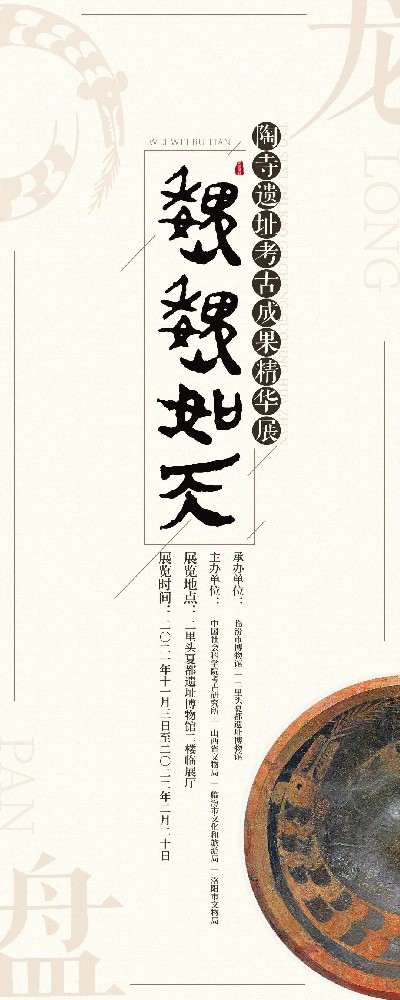 龙
LONG
WEI WEI RU TIAN
陶寺遗址考古成果精华展
巍巍如天
承办单位：临汾市博物馆 | 二里头夏都遗址博物馆
主办单位：中国社会科学院考古研究所 | 山西省文物局 | 临汾市文化和旅游局 | 洛阳市文物局
展览地点：二里头夏都遗址博物馆二楼临展厅
展览时间：二〇二一年十一月三日至二〇二二年二月二十日
PAN
盘